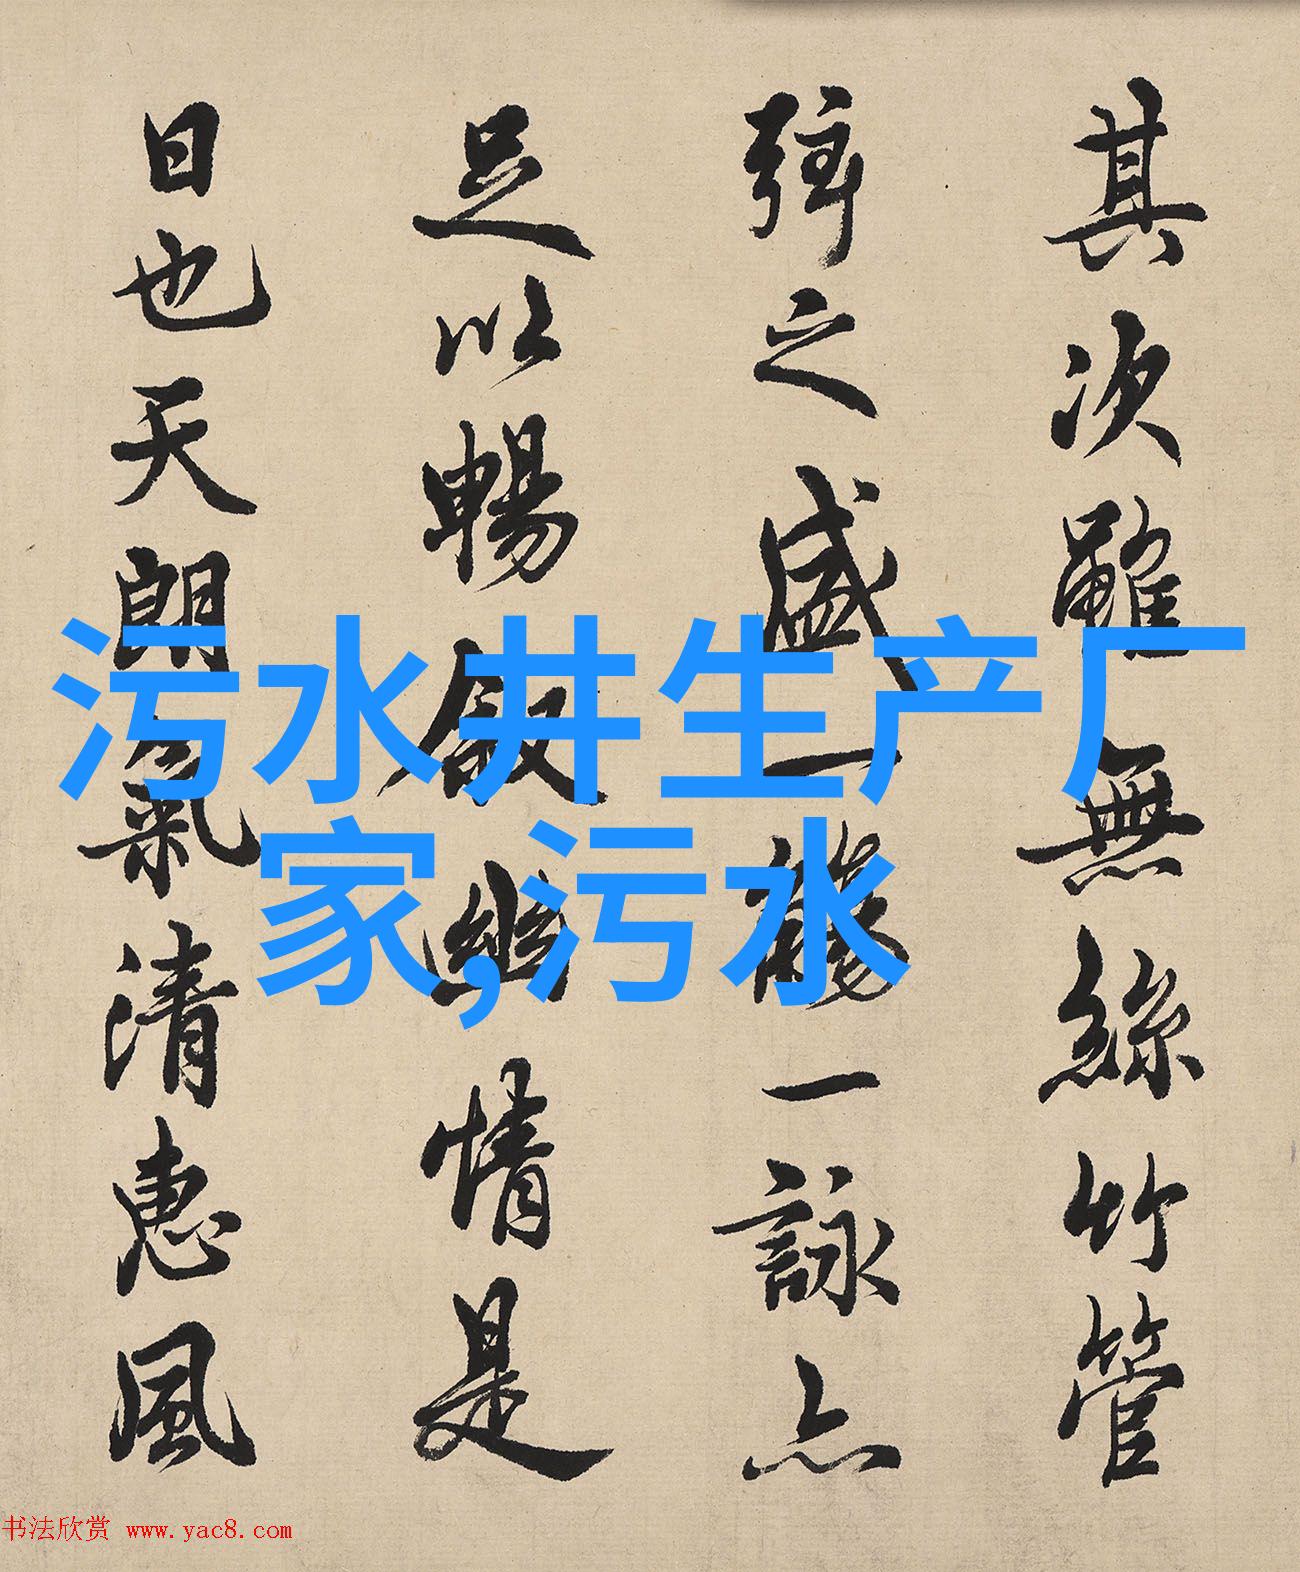 其次雖無絲竹管
弦之盛一觴一詠亦
足以暢叙幽情是
日也天朗氣清惠風
污水井生产厂
家,污水
书法欣赏 www.yac8.com